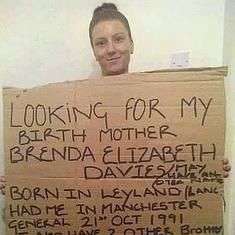 LOOKING FOR MY
BIRTH MOTHER
BRENDA ELIZABETH
DAVIES/MAY
HAVE AN
OTHER NAME
BORN IN LEYLAND/LANC
HAD ME IN MANCHESTER
GENERAL 21ST OCT 1991
HAVE 2 OTHER BROTHERS